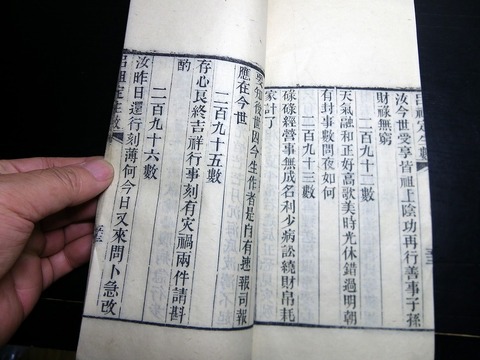 汝今世受享皆祖上陰功再行善事子孫
財祿無窮
二百九十二數
天氣融和正好高歌美時光休錯過明朝
有封事數問夜如何
二百九十三數
碌碌經營事無成名利少病訟繞財帛耗
家計了
後世因今生作者是內有速報司報
應在今世
二百九十五數
存心良終吉祥行事刻有灾禍兩件請斟
酌
二百九十六數
汝昨日還行刻薄何今日又來問卜急改
呂祖定生數